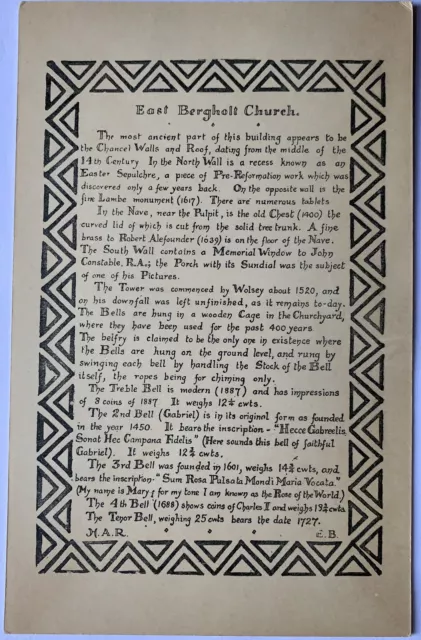 East Bergholt Church.
The most ancient part of this building appears to be
the Chancel Walls and Roof, dating from the middle of the
14th Century In the North Wall is a recess known as an
Easter Sepulchre, a piece of Pre-Reformation work which was
discovered only a few years back. On the opposite wall is the
fine Lambe monument (1617). There are numerous tablets
In the Nave, near the Pulpit, is the old Chest (1400) the
curved lid of which is cut from the solid tree trunk. A fine
brass to Robert Alefounder (1639) is on the floor of the Nave.
The South Wall contains a Memorial Window to John
Constable, R.A.; the Porch with its Sundial was the subject
of one of his Pictures.
The Tower was commenced by Wolsey about 1520, and
on his downfall was left unfinished, as it remains to-day.
The Bells are hung in a wooden Cage in the Churchyard,
where they have been used for the past 400 years
The belfry is claimed to be the only one in existence where
the Bells are hung on the ground level, and rung by
swinging each bell by handling the Stock of the Bell
itself, the ropes being for chiming only.
The Treble Bell is modern (1887) and has impressions
of 3 coins of 1887 It weighs 12¼ cwts.
The 2nd Bell (Gabriel) is in its original form as founded
in the year 1450. It bears the inscription - "Hecce Gabreelis
Sonat Hec Campana Fidelis" (Here sounds this bell of faithful
Gabriel). It weighs 12¾ cwts.
The 3rd Bell was founded in 1601, weighs 14¾ cwts, and
bears the inscription- "Sum Rosa Pulsata Mondi Maria Vocata."
(My name is Mary; for my tone I am known as the Rose of the World.)
The 4th Bell (1688) shows coins of Charles II and weighs 19¾ cwts
The Tenor Bell, weighing 25 cwts bears the date 1727.
H.A.R. E.B.